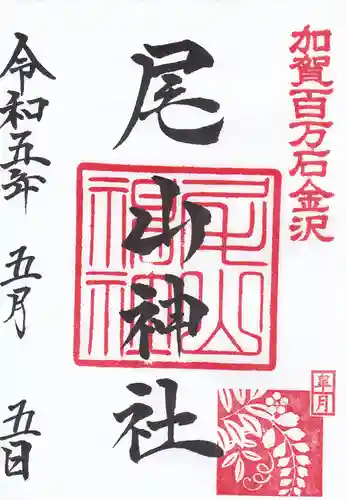 加賀百万石金沢
尾山神社
令和五年 五月 五日
皐月